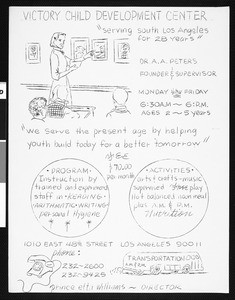 VICTORY CHILD DEVELOPMENT CENTER
"serving south Los Angeles
for 28 years"
DR. A.A. PETERS
FOUNDER & SUPERVISOR
MONDAY thru FRIDAY
6:30AM - 6:P.M.
AGES 2 - 5 years
"We serve the present age by helping
youth build today for a better tomorrow"
per month
PROGRAM
Instruction by
trained and experienced
staff in READING
ARITHMETIC WRITING
personal Hygiene
ACTIVITIES
art crafts music
supervised free play
hot balanced noon meal
Nutrition
LOS ANGELES 90011
phone:
232-2600
232-9425
TRANSPORTATION
Williams - DIRECTOR